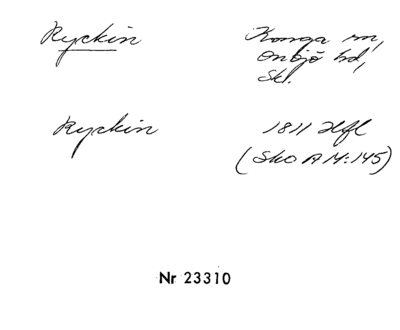 Ryckin
Konga sn,
Onsjö hd,
Skl.
Ryckin
1811 Hfl
(SkO A II:145)
Nr 23310